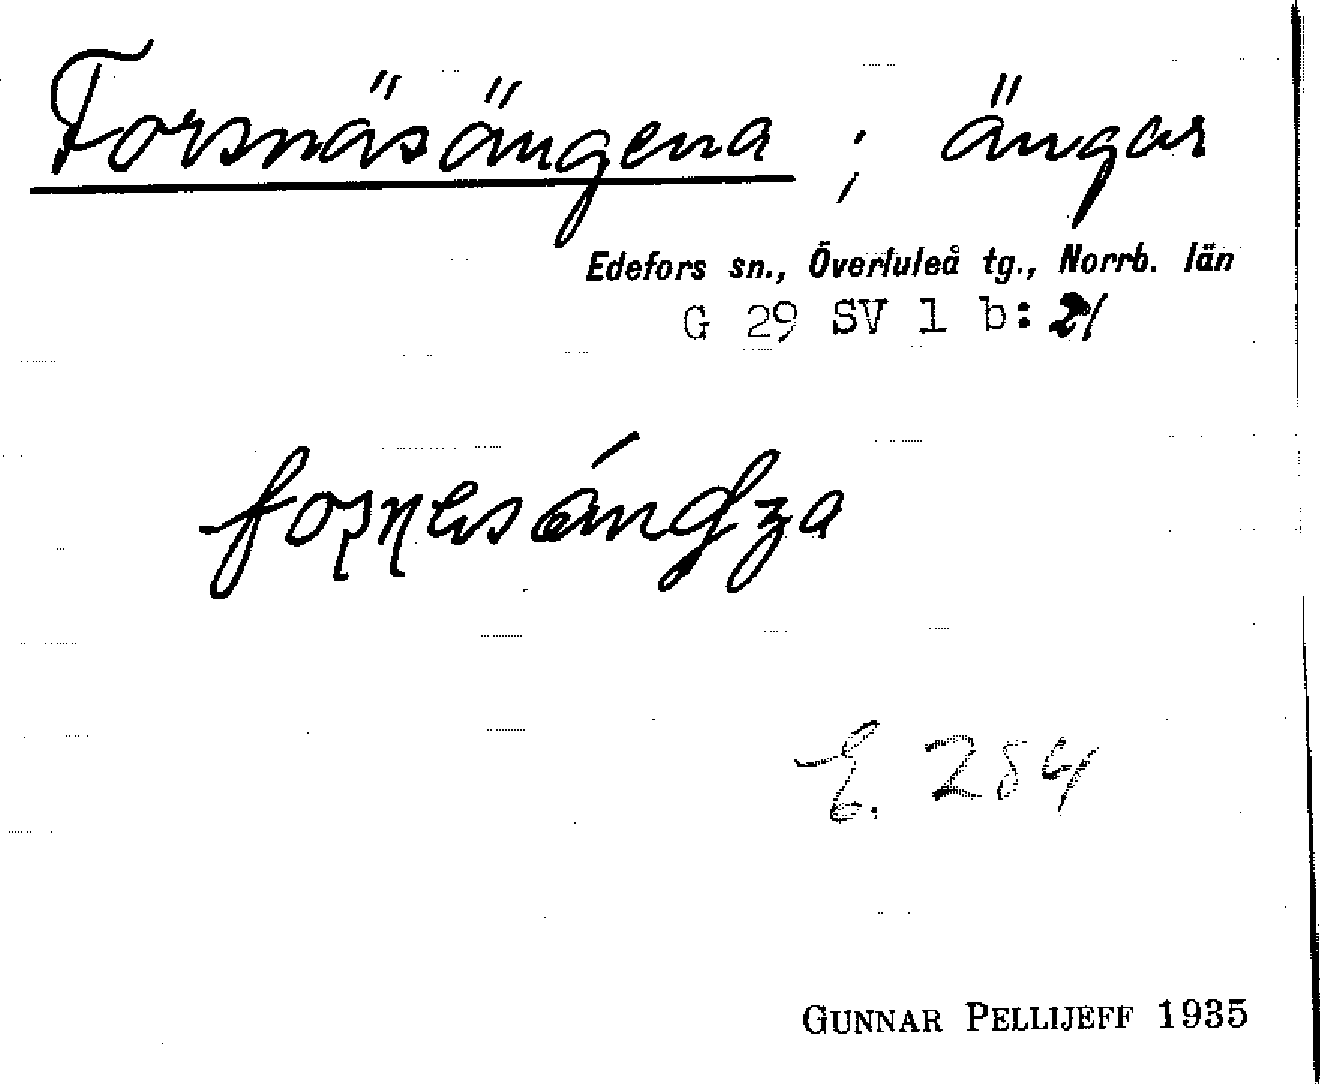 Forsnäsängena ; ängar
Edefors sn., Överluleå tg., Norrb. län
G 29 SV 1 b: 21
E. 254
GUNNAR PELLIJEFF 1935